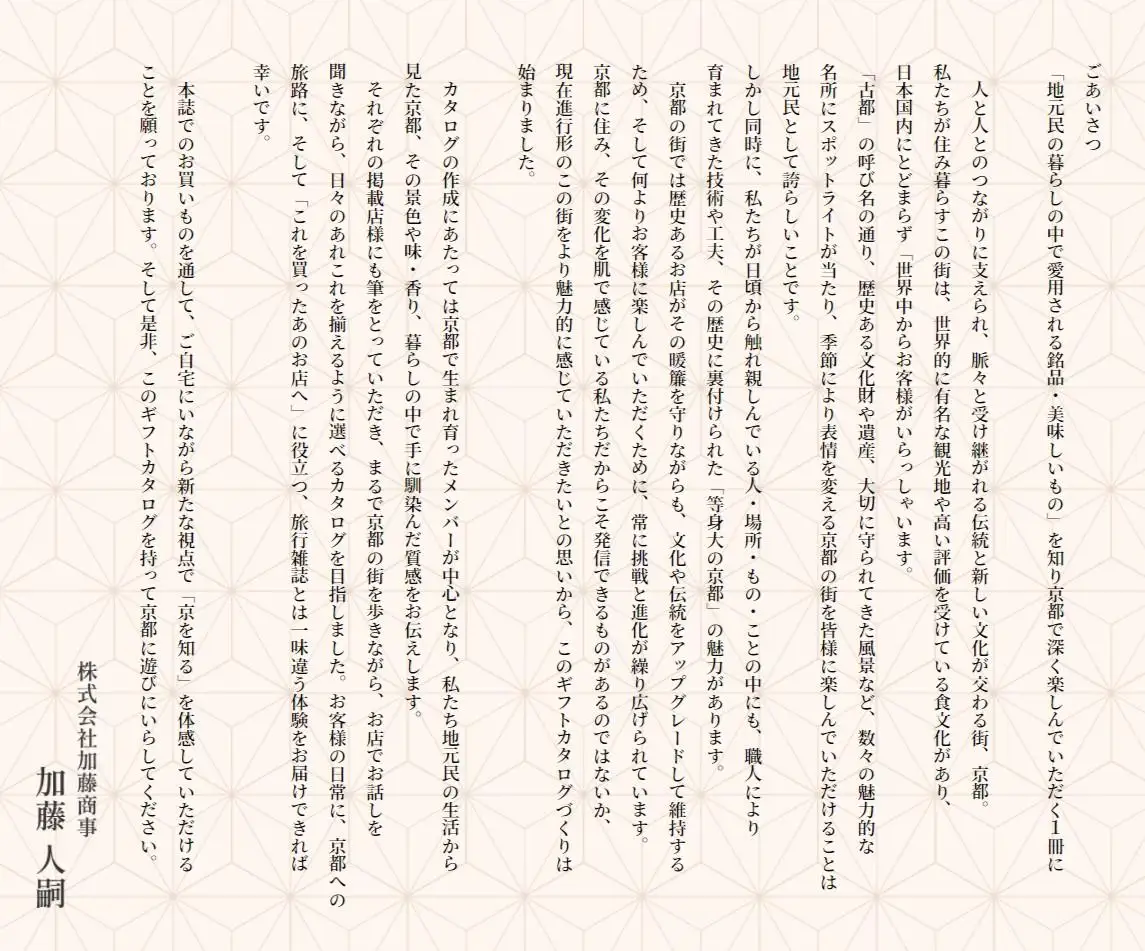 ごあいさつ
「地元民の暮らしの中で愛用される銘品・美味しいもの」を知り京都で深く楽しんでいただく1冊に
人と人とのつながりに支えられ、脈々と受け継がれる伝統と新しい文化が交わる街、京都。
私たちが住み暮らすこの街は、世界的に有名な観光地や高い評価を受けている食文化があり、
日本国内にとどまらず「世界中からお客様がいらっしゃいます。
「古都」の呼び名の通り、歴史ある文化財や遺産、大切に守られてきた風景など、数々の魅力的な
名所にスポットライトが当たり、季節により表情を変える京都の街を皆様に楽しんでいただけることは
地元民として誇らしいことです。
しかし同時に、私たちが日頃から触れ親しんでいる人・場所・もの・ことの中にも、職人により
育まれてきた技術や工夫、その歴史に裏付けられた「等身大の京都」の魅力があります。
京都の街では歴史あるお店がその暖簾を守りながらも、文化や伝統をアップグレードして維持する
ため、そして何よりお客様に楽しんでいただくために、常に挑戦と進化が繰り広げられています。
京都に住み、その変化を肌で感じている私たちだからこそ発信できるものがあるのではないか、
現在進行形のこの街をより魅力的に感じていただきたいとの思いから、このギフトカタログづくりは
始まりました。
カタログの作成にあたっては京都で生まれ育ったメンバーが中心となり、私たち地元民の生活から
見た京都、その景色や味・香り、暮らしの中で手に馴染んだ質感をお伝えします。
それぞれの掲載店様にも筆をとっていただき、まるで京都の街を歩きながら、お店でお話しを
聞きながら、日々のあれこれを揃えるように選べるカタログを目指しました。お客様の日常に、京都への
旅路に、そして「これを買ったあのお店へ」に役立つ、旅行雑誌とは一味違う体験をお届けできれば
幸いです。
本誌でのお買いものを通して、ご自宅にいながら新たな視点で「京を知る」を体感していただける
ことを願っております。そして是非、このギフトカタログを持って京都に遊びにいらしてください。
株式会社加藤商事
加藤 人嗣